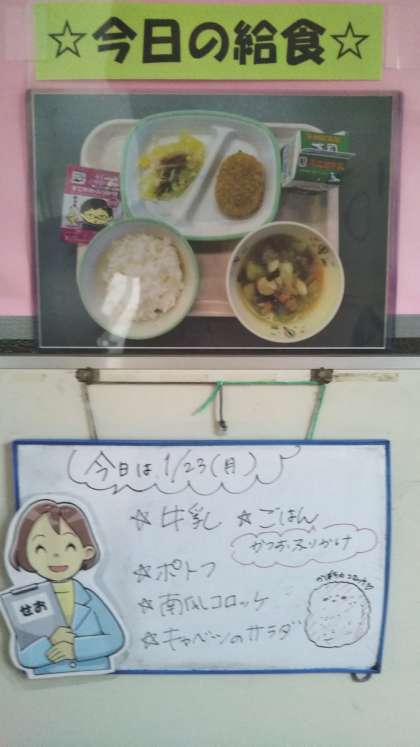 ☆今日の給食☆
今日は 1/23(月)
☆牛乳 ☆ごはん
かつおふりかけ
☆ポトフ
☆南瓜コロッケ
☆キャベツのサラダ
せお